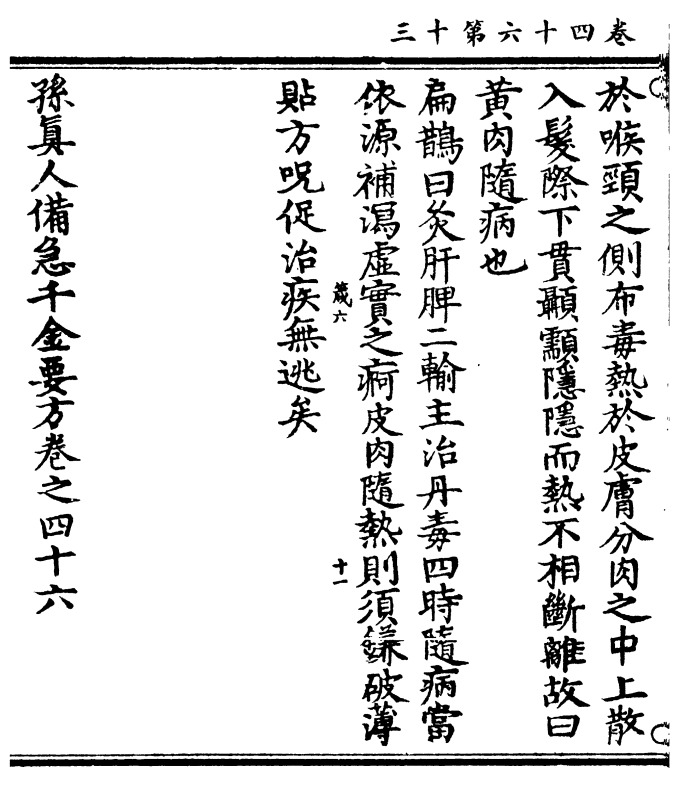 卷四十六第十三
於喉頸之側布毒熱於皮膚分肉之中上散
入髮際下貫顳顬隱隱而熱不相斷離故曰
黃肉隨病也
扁鵲曰灸肝脾二輸主治丹毒四時隨病當
依源補瀉虛實之痾皮肉隨熱則須鎌破薄
貼方呪促治疾無逃矣
箴六
十一
孫真人備急千金要方卷之四十六